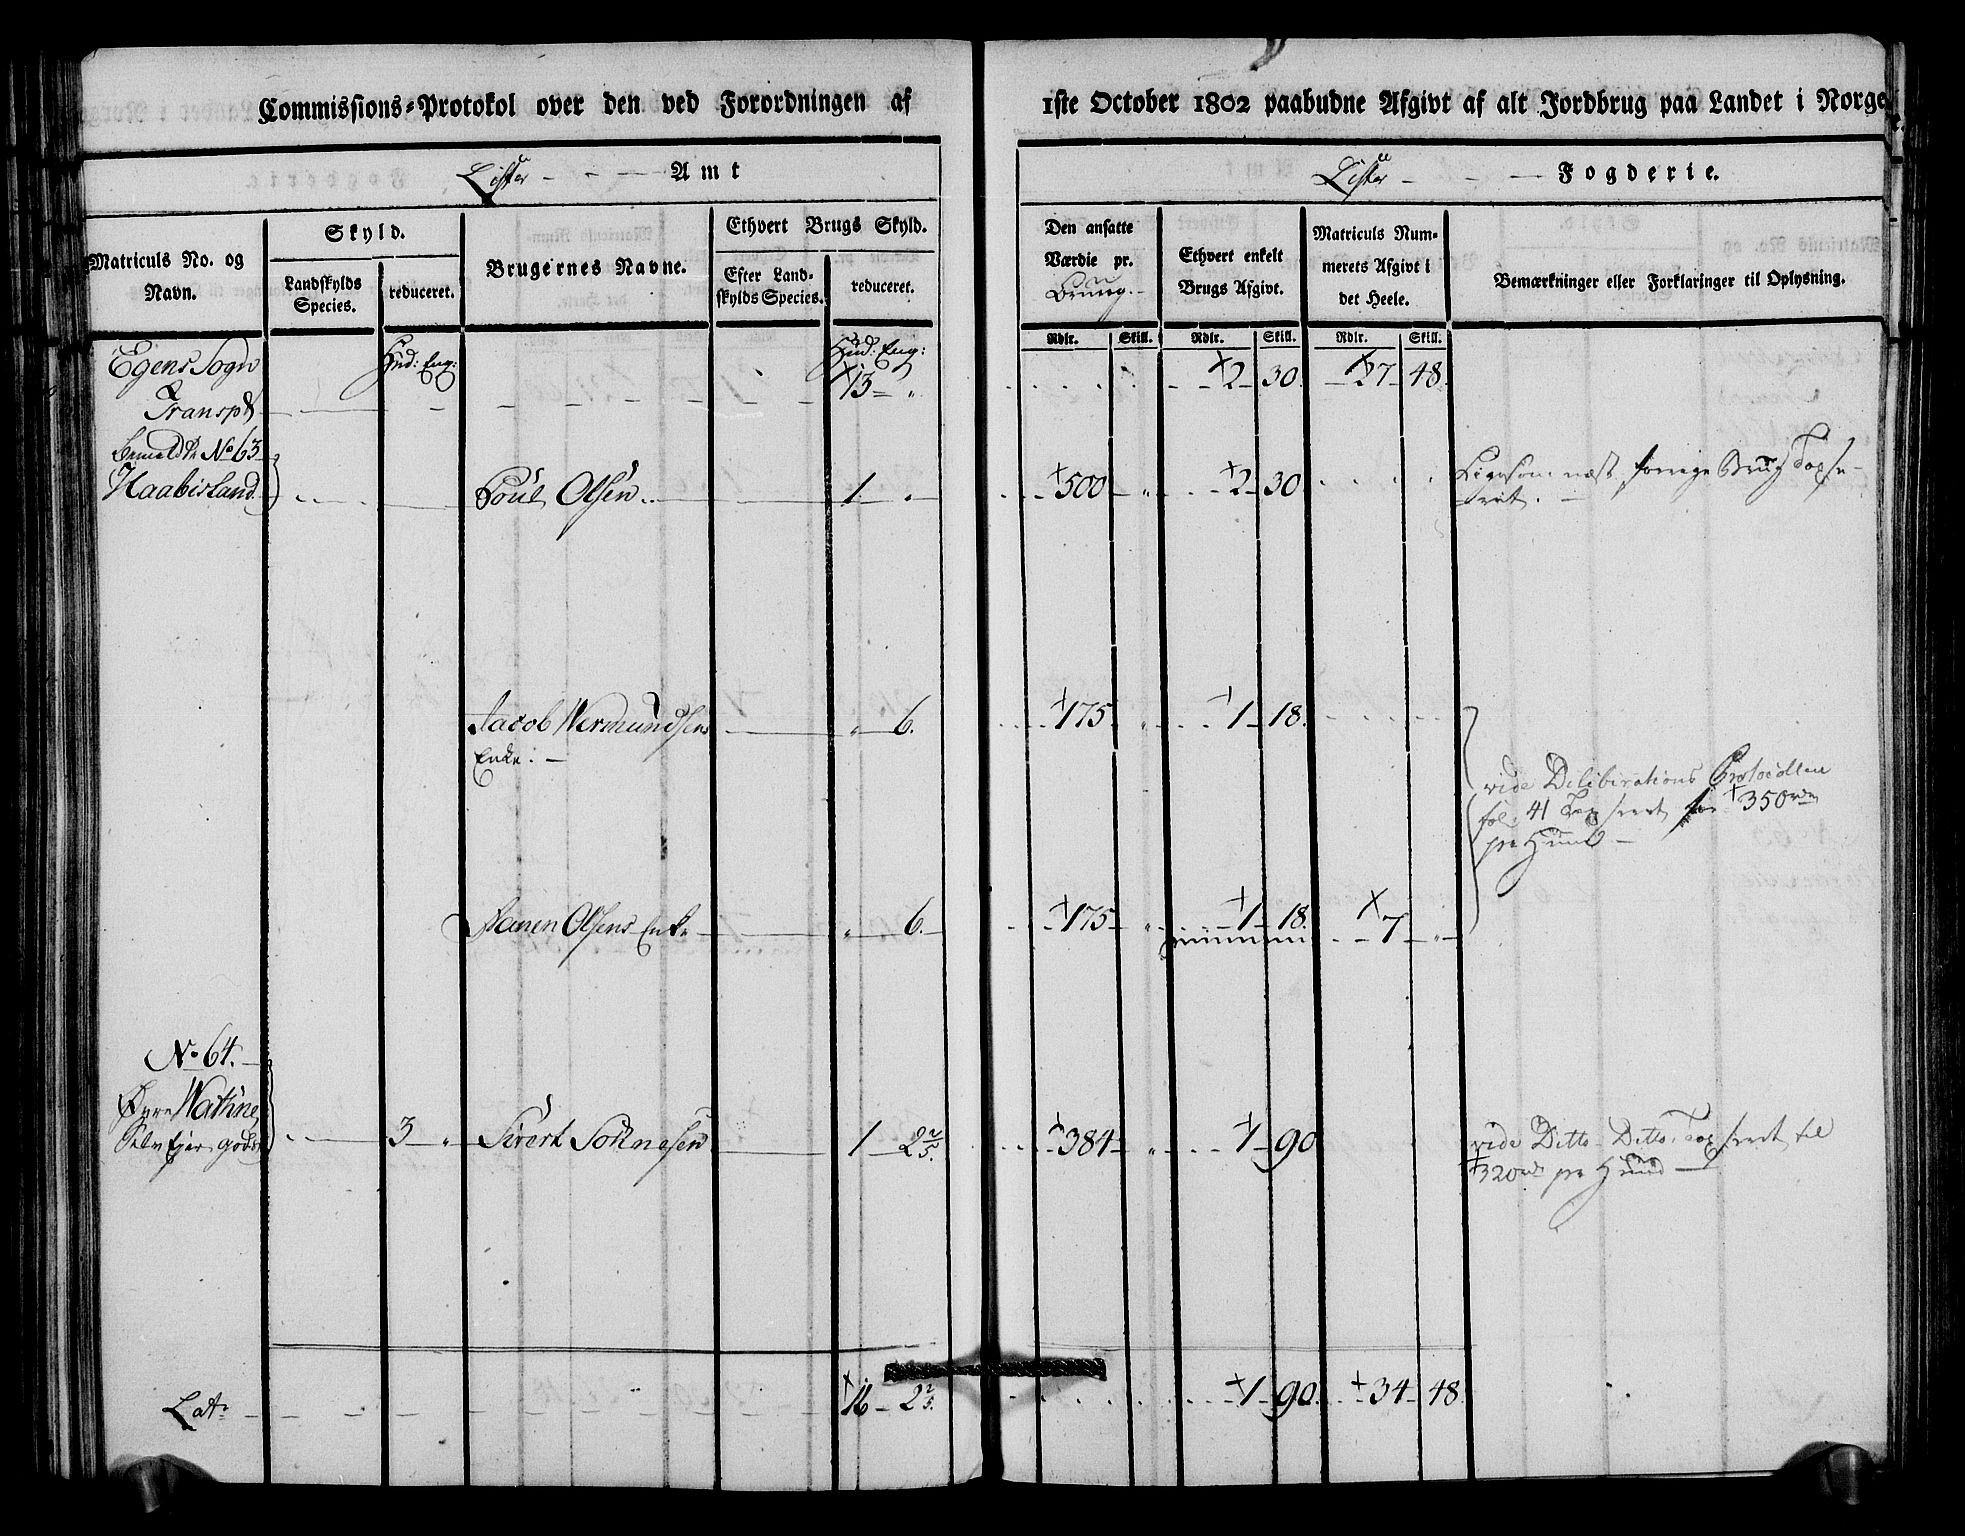 Commissions-Protokol over den ved Forordningen af 1ste October 1802 paabudne Afgivt af alt Jordbrug paa Landet i Norge.
Lister - - - Amt
Lister - - - Fogderie.
Matriculs No. og Navn.
Skyld.
Landskylds Species.
reduceret.
Brugernes Navne.
Ethvert Brugs Skyld.
Efter Landskylds Species.
reduceret.
Den ansatte Værdie pr.
Brug.
Ethvert enkelt Brugs Afgivt.
Matriculs Nummerets Afgivt i det Heele.
Bemærkninger eller Forklaringer til Oplysning.
Rdlr. Skill. Rdlr. Skill. Rdlr. Skill.
Egens Sogn Hud: Eng: Hud: Eng:
Transpt - - - +13 - " +2 - 30. +27 - 48.
No 63
Haabisland Poul Olsen 1. " +500 - " +2 - 30 Ligesom næst forrige Brug Taxe-
ret. -
Jacob Wermundsens " 6. +175 " +1 - 18.
Enke. -
vide Deliberations Protocollen
fol. 41 Taxeret for +350 rdr
pr Huud -
Olsens Enke " 6. +175 - " +1 - 18. +7 - " -
No 64.
Øvre Wathne
Selv Ejer gods 3 " Sivert 1 - 2 2/5. +384 - " +1 - 90 vide Ditto Ditto. Taxeret til
+320 rd pr Huud -
Lat. - - - +16 - 2 2/5. +1 - 90. +34 - 48.